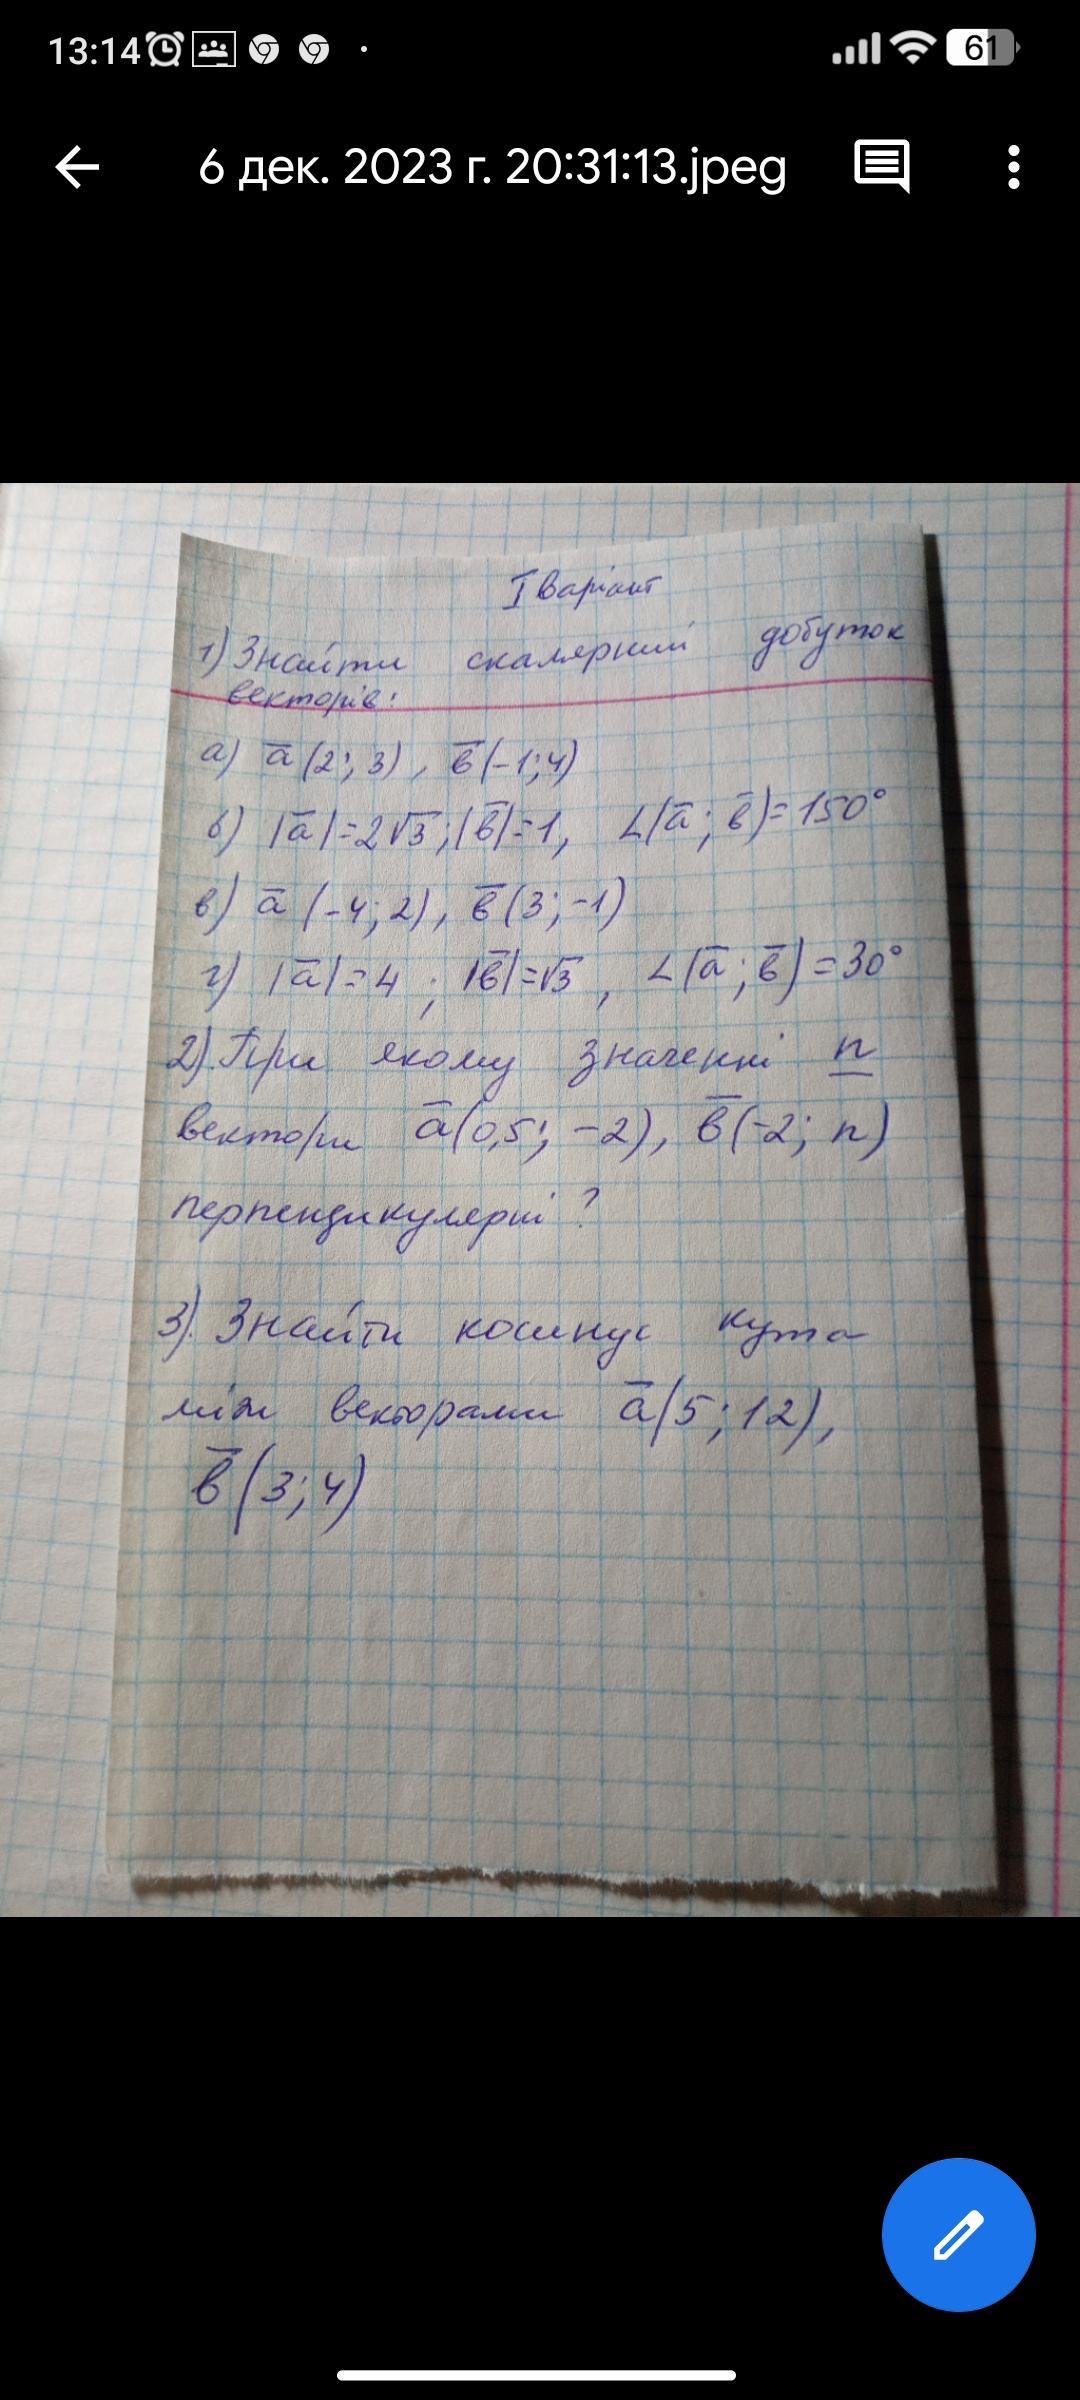 13:14
61
6 дек. 2023 г. 20:31:13.jpeg
I варіант
1) Знайти скалярний добуток
векторів:
а) a̅ (2; 3), в̅ (-1; 4)
б) |a̅|=2√3; |в̅|=1, ∠(a̅; в̅)=150°
в) a̅ (-4; 2), в̅ (3; -1)
г) |a̅|=4; |в̅|=√3, ∠(a̅; в̅)=30°
2). При якому значенні n
вектори a̅(0,5; -2), в̅(-2; n)
перпендикулярні?
3). Знайти косинус кута
між векторами a̅(5; 12),
в̅(3; 4)